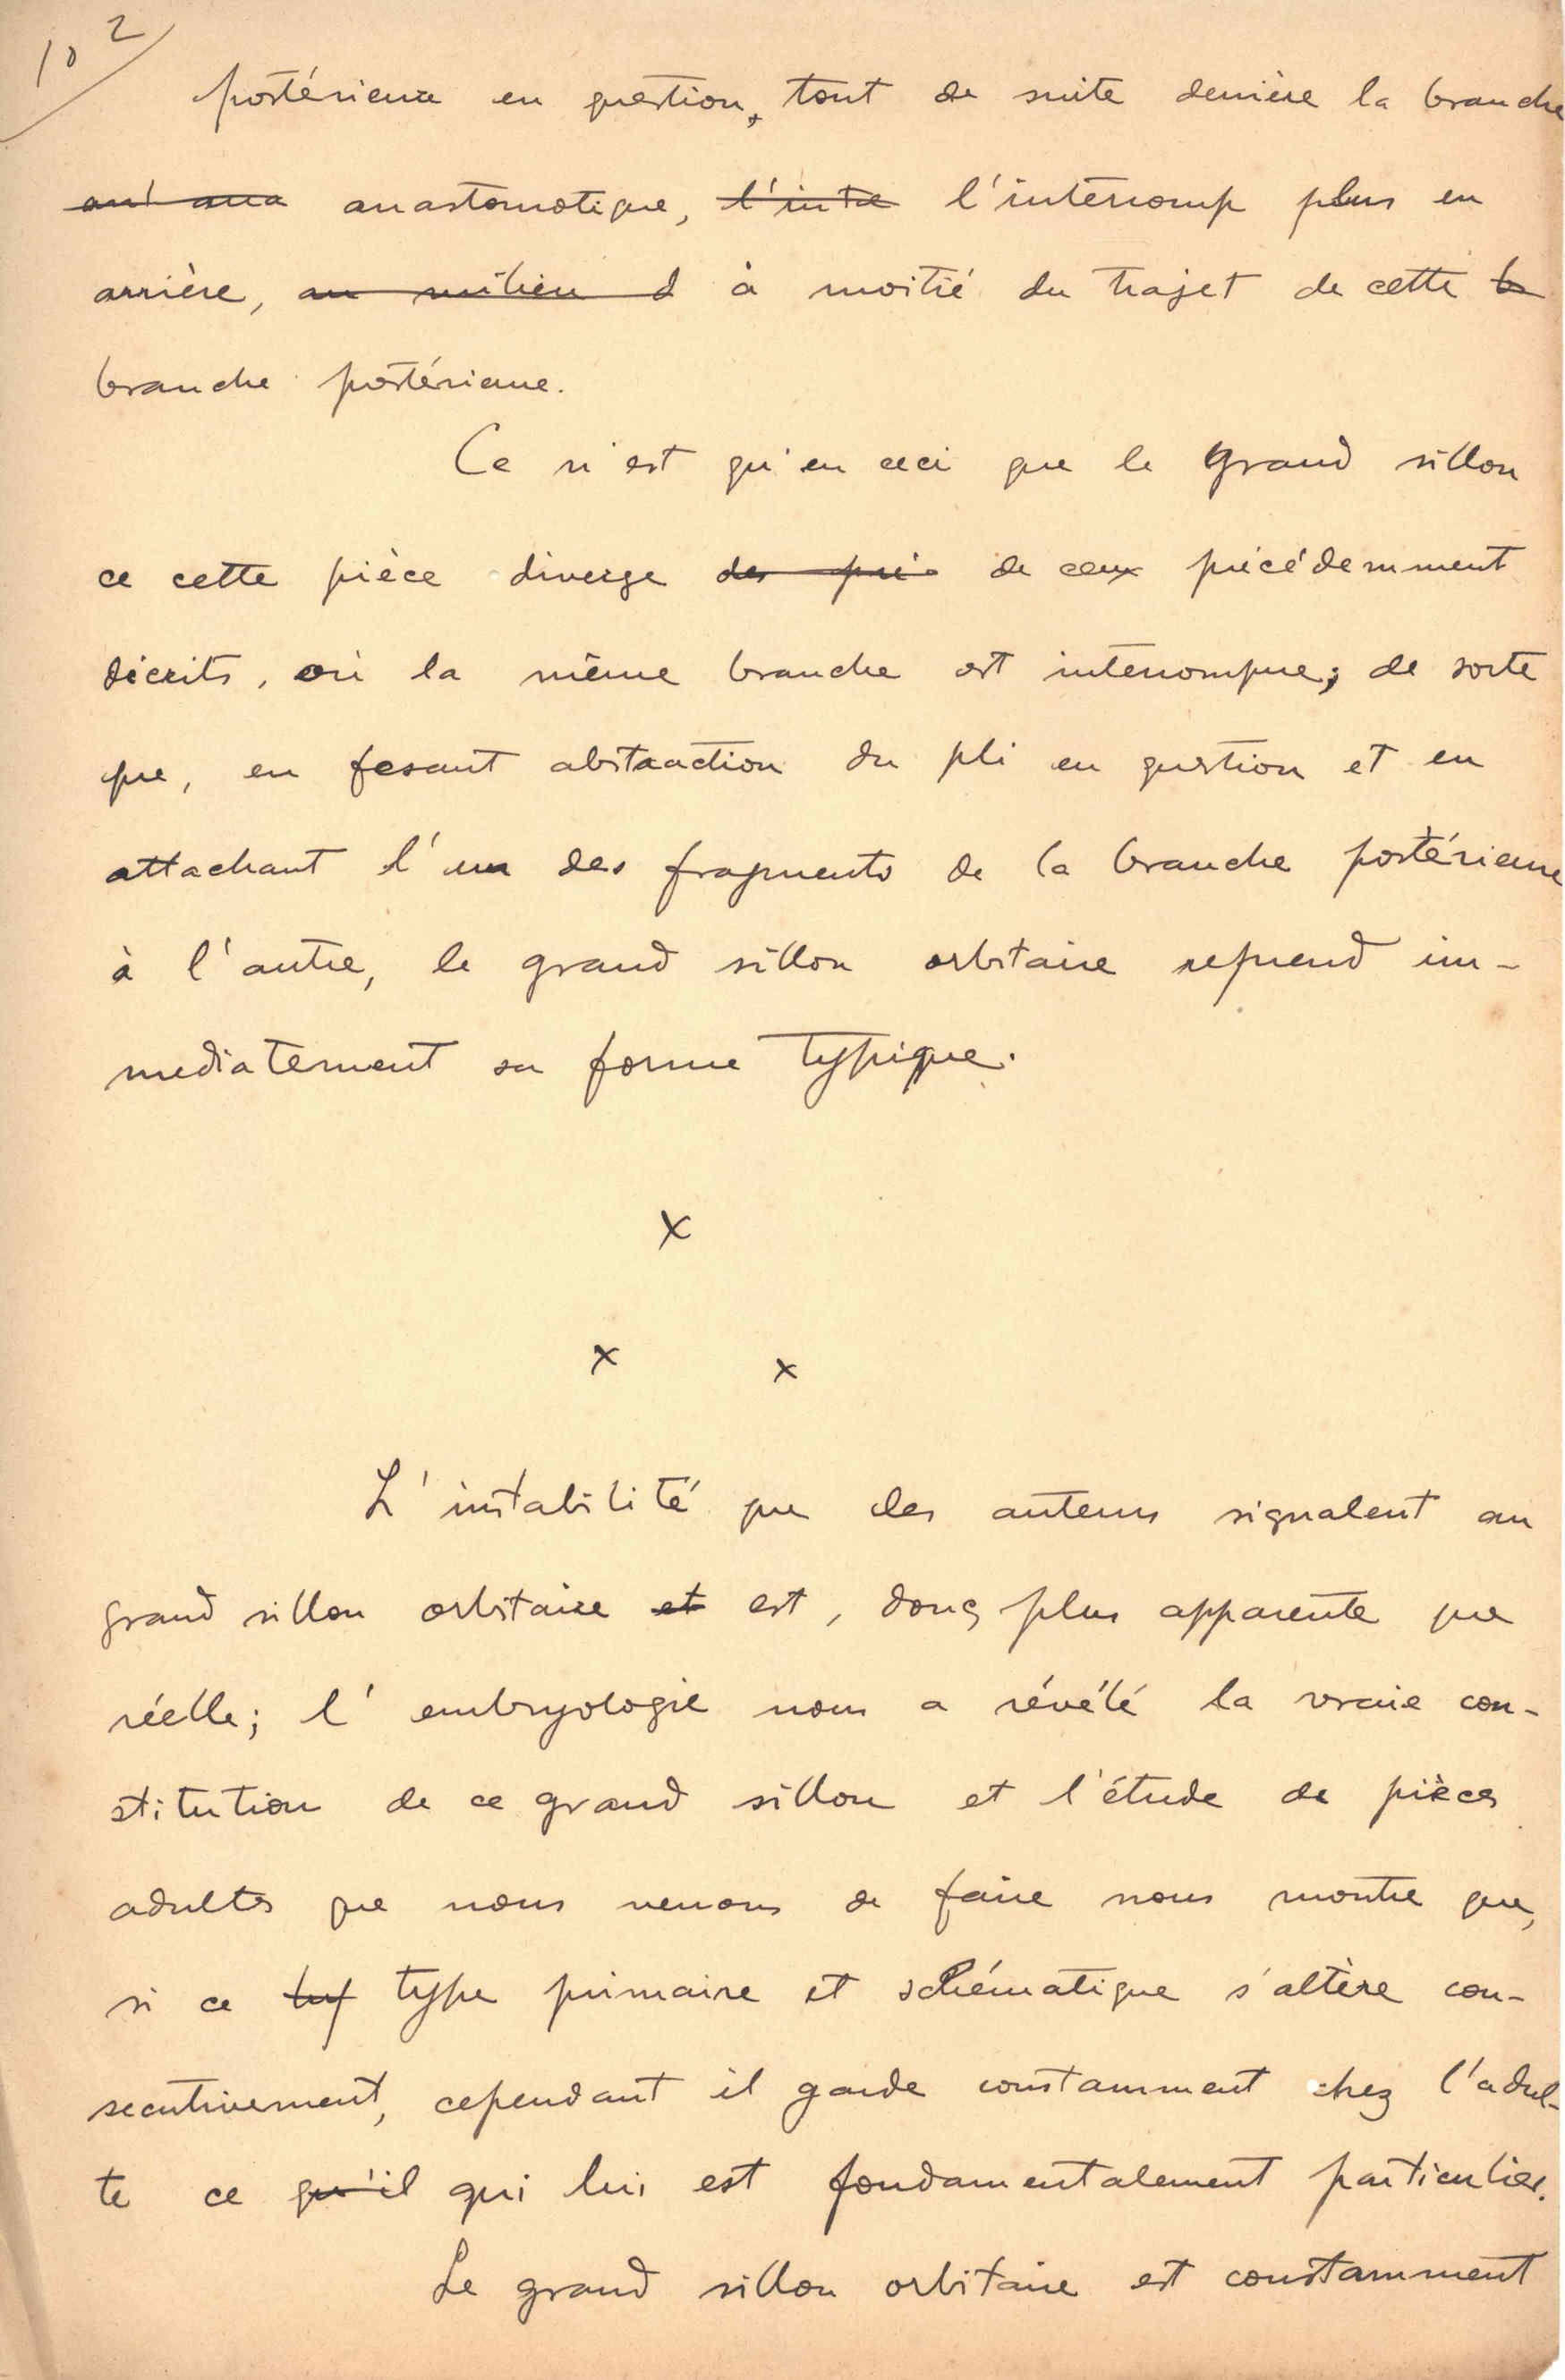 102
postérieure en question, tout de suite derrière la branche
ant ana anastomotique, l'inte l'interromp plus en
arrière, au milieu d à moitié du trajet de cette b
branche postérieure.
Ce n'est qu'en ceci que le grand sillon
ce cette pièce diverge des pré de ceux précédemment
décrits, où la même branche est interrompue; de sorte
que, en fesant abstraction du pli en question et en
attachant l'un des fragments de la branche postérieure
à l'autre, le grand sillon orbitaire reprend im-
mediatement sa forme typique.
x
x x
L'instabilité que des auteurs signalent au
grand sillon orbitaire et est, donc plus apparente que
réelle; l'embryologie nous a révélé la vraie con-
stitution de ce grand sillon et l'étude de pièces
adultes que nous venons de faire nous montre que,
si ce typ type primaire et schématique s'altère con-
secutivement, cependant il garde constamment chez l'adul-
te ce qu'il qui lui est fondamentalement particulier.
Le grand sillon orbitaire est constamment